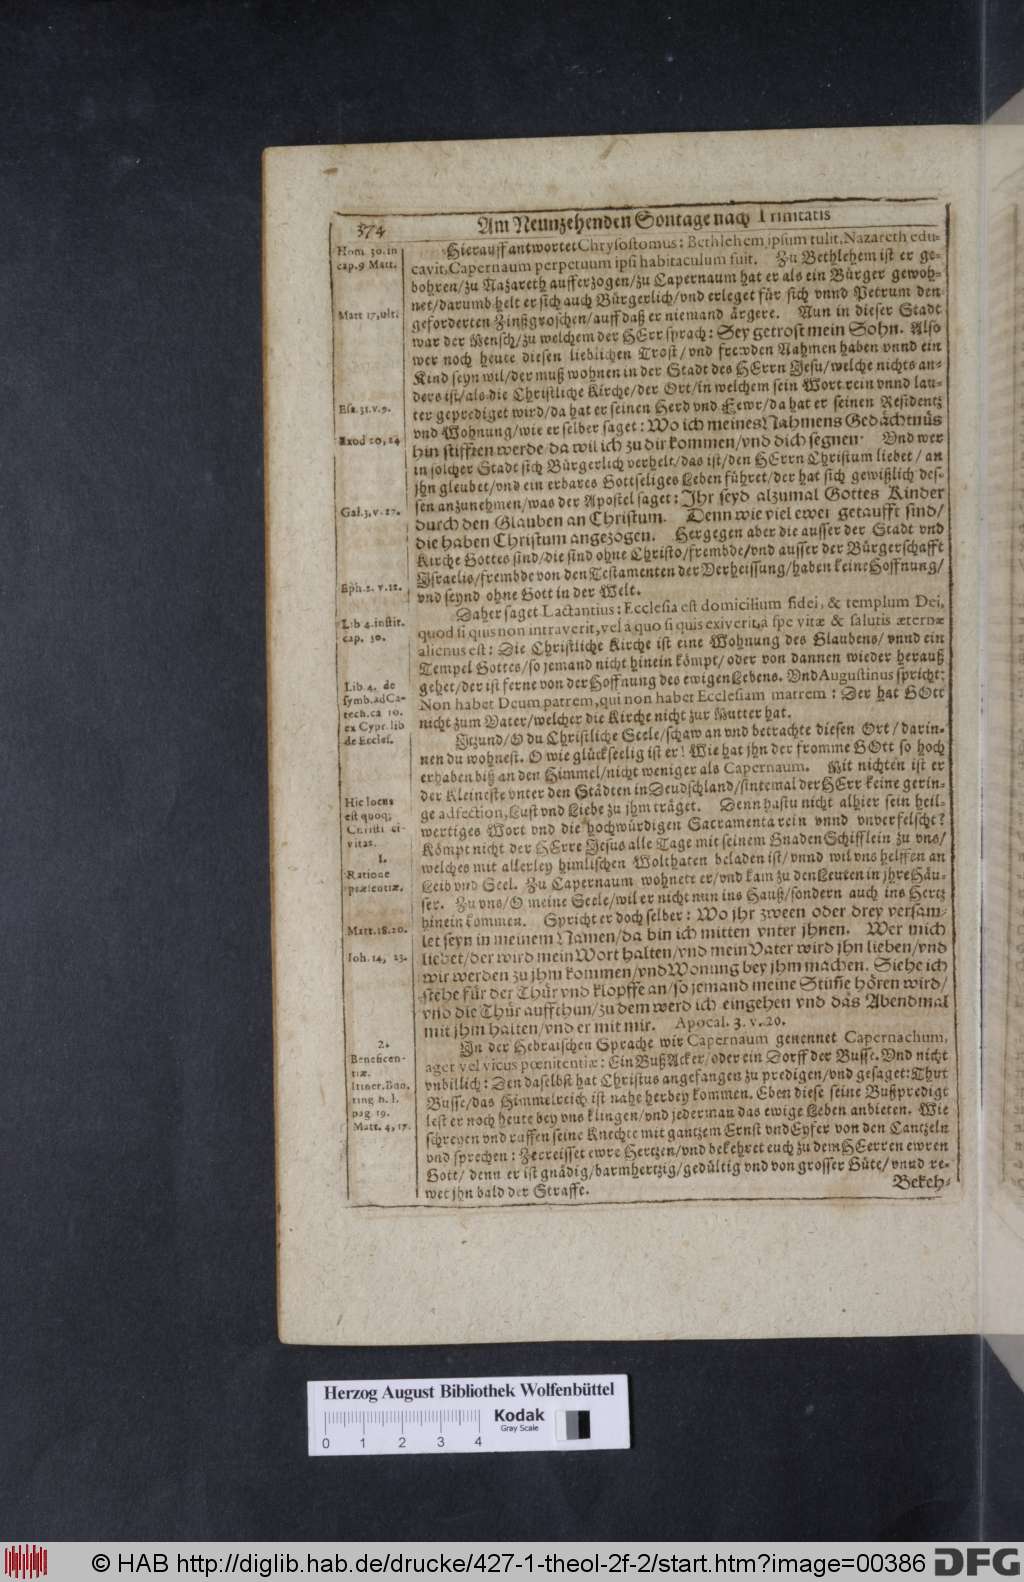 374
Am Neunzehenden Sontage nach Trinitatis
Hom. 30. in
cap. 9 Matt.
Matt 17, ult.
Esa. 31. v. 9.
Exod 20, 24
Gal. 3. v. 27.
Eph. 2. v. 12.
Lib 4. instit.
cap. 30.
Lib. 4. de
symb. ad Ca-
tech. ca 10.
ex Cypr. lib
de Eccles.
Hic locus
est quoq;
Christi ci-
vitas.
1.
Ratione
præsentiæ.
Matt. 18. 20.
Ioh. 14, 23.
2.
Beneficen-
tiæ.
Itiner. Bun.
ting h. l.
pag 19.
Matt. 4, 17.
Hierauff antwortet Chrysostomus: Bethlehem ipsum tulit, Nazareth edu-
cavit, Capernaum perpetuum ipsi habitaculum fuit. Zu Bethlehem ist er ge-
bohren/zu Nazareth aufferzogen/zu Capernaum hat er als ein Bürger gewoh-
net/darumb helt er sich auch Bürgerlich/vnd erleget für sich vnnd Petrum den
geforderten Zinßgroschen/auff daß er niemand ärgere. Nun in dieser Stadt
war der Mensch/zu welchem der HErr sprach: Sey getrost mein Sohn. Also
wer noch heute diesen lieblichen Trost/vnd frewden Nahmen haben vnnd ein
Kind seyn wil/der muß wohnen in der Stadt des HErrn Jesu/welche nichts an-
ders ist/als die Christliche Kirche/der Ort/in welchem sein Wort rein vnnd lau-
ter geprediget wird/da hat er seinen Herd vnd Fewr/da hat er seinen Residentz
vnd Wohnung/wie er selber saget: Wo ich meines Nahmens Gedächtnüs
hin stifften werde/da wil ich zu dir kommen/vnd dich segnen. Vnd wer
in solcher Stadt sich Bürgerlich verhelt/das ist/den HErrn Christum liebet/an
jhn gleubet/vnd ein erbares Gottseliges Leben führet/der hat sich gewißlich des-
sen anzunehmen/was der Apostel saget: Ihr seyd alzumal Gottes Kinder
durch den Glauben an Christum. Denn wie viel ewer getaufft sind/
die haben Christum angezogen. Hergegen aber die ausser der Stadt vnd
Kirche Gottes sind/die sind ohne Christo/frembde/vnd ausser der Bürgerschafft
Israelis/frembde von den Testamenten der Verheissung/haben keine Hoffnung/
vnd seynd ohne Gott in der Welt.
Daher saget Lactantius: Ecclesia est domicilium fidei, & templum Dei,
quod si quis non intraverit, vel à quo si quis exiverit, à spe vitæ & salutis æternæ
alienus est: Die Christliche Kirche ist eine Wohnung des Glaubens/vnnd ein
Tempel Gottes/so jemand nicht hinein kömpt/oder von dannen wieder herauß
gehet/der ist ferne von der Hoffnung des ewigen Lebens. Vnd Augustinus spricht:
Non habet Deum patrem, qui non habet Ecclesiam matrem: Der hat GOtt
nicht zum Vater/welcher die Kirche nicht zur Mutter hat.
Itzund/O du Christliche Seele/schaw an vnd betrachte diesen Ort/darin-
nen du wohnest. O wie glückseelig ist er! Wie hat jhn der fromme GOtt so hoch
erhaben biß an den Himmel/nicht weniger als Capernaum. Mit nichten ist er
der Kleineste vnter den Städten in Deudschland/sintemal der HErr keine gerin-
ge adfection, Lust vnd Liebe zu jhm träget. Denn hastu nicht alhier sein heil-
wertiges Wort vnd die hochwürdigen Sacramenta rein vnnd vnverfelscht?
Kömpt nicht der HErre Jesus alle Tage mit seinem Gnaden Schifflein zu vns/
welches mit allerley himlischen Wolthaten beladen ist/vnnd wil vns helffen an
Leib vnd Seel. Zu Capernaum wohnete er/vnd kam zu den Leuten in jhre Häu-
ser. Zu vns/O meine Seele/wil er nicht nun ins Hauß/sondern auch ins Hertz
hinein kommen. Spricht er doch selber: Wo jhr zween oder drey versam-
let seyn in meinem Namen/da bin ich mitten vnter jhnen. Wer mich
liebet/der wird mein Wort halten/vnd mein Vater wird jhn lieben/vnd
wir werden zu jhm kommen/vnd Wonung bey jhm machen. Siehe ich
stehe für der Thür vnd klopffe an/so jemand meine Stimme hören wird/
vnd die Thür auffthun/zu dem werd ich eingehen vnd das Abendmal
mit jhm halten/vnd er mit mir. Apocal. 3. v. 20.
In der Hebraischen Sprache wir Capernaum genennet Capernachum,
ager vel vicus pœnitentiæ: Ein Buß Acker/oder ein Dorff der Busse. Vnd nicht
vnbillich: Den daselbst hat Christus angefangen zu predigen/vnd gesaget: Thut
Busse/das Himmelreich ist nahe herbey kommen. Eben diese seine Bußpredigt
lest er noch heute bey vns klingen/vnd jederman das ewige Leben anbieten. Wie
schreyen vnd ruffen seine Knechte mit gantzem Ernst vnd Eyfer von den Cantzeln
vnd sprechen: Zerreisset ewre Hertzen/vnd bekehret euch zu dem HErren ewren
Gott/denn er ist gnädig/barmhertzig/gedültig vnd von grosser Güte/vnnd re-
wet jhn bald der Straffe.
Bekeh-
Herzog August Bibliothek Wolfenbüttel
Kodak
Gray Scale
0 1 2 3 4
© HAB http://diglib.hab.de/drucke/427-1-theol-2f-2/start.htm?image=00386
DFG